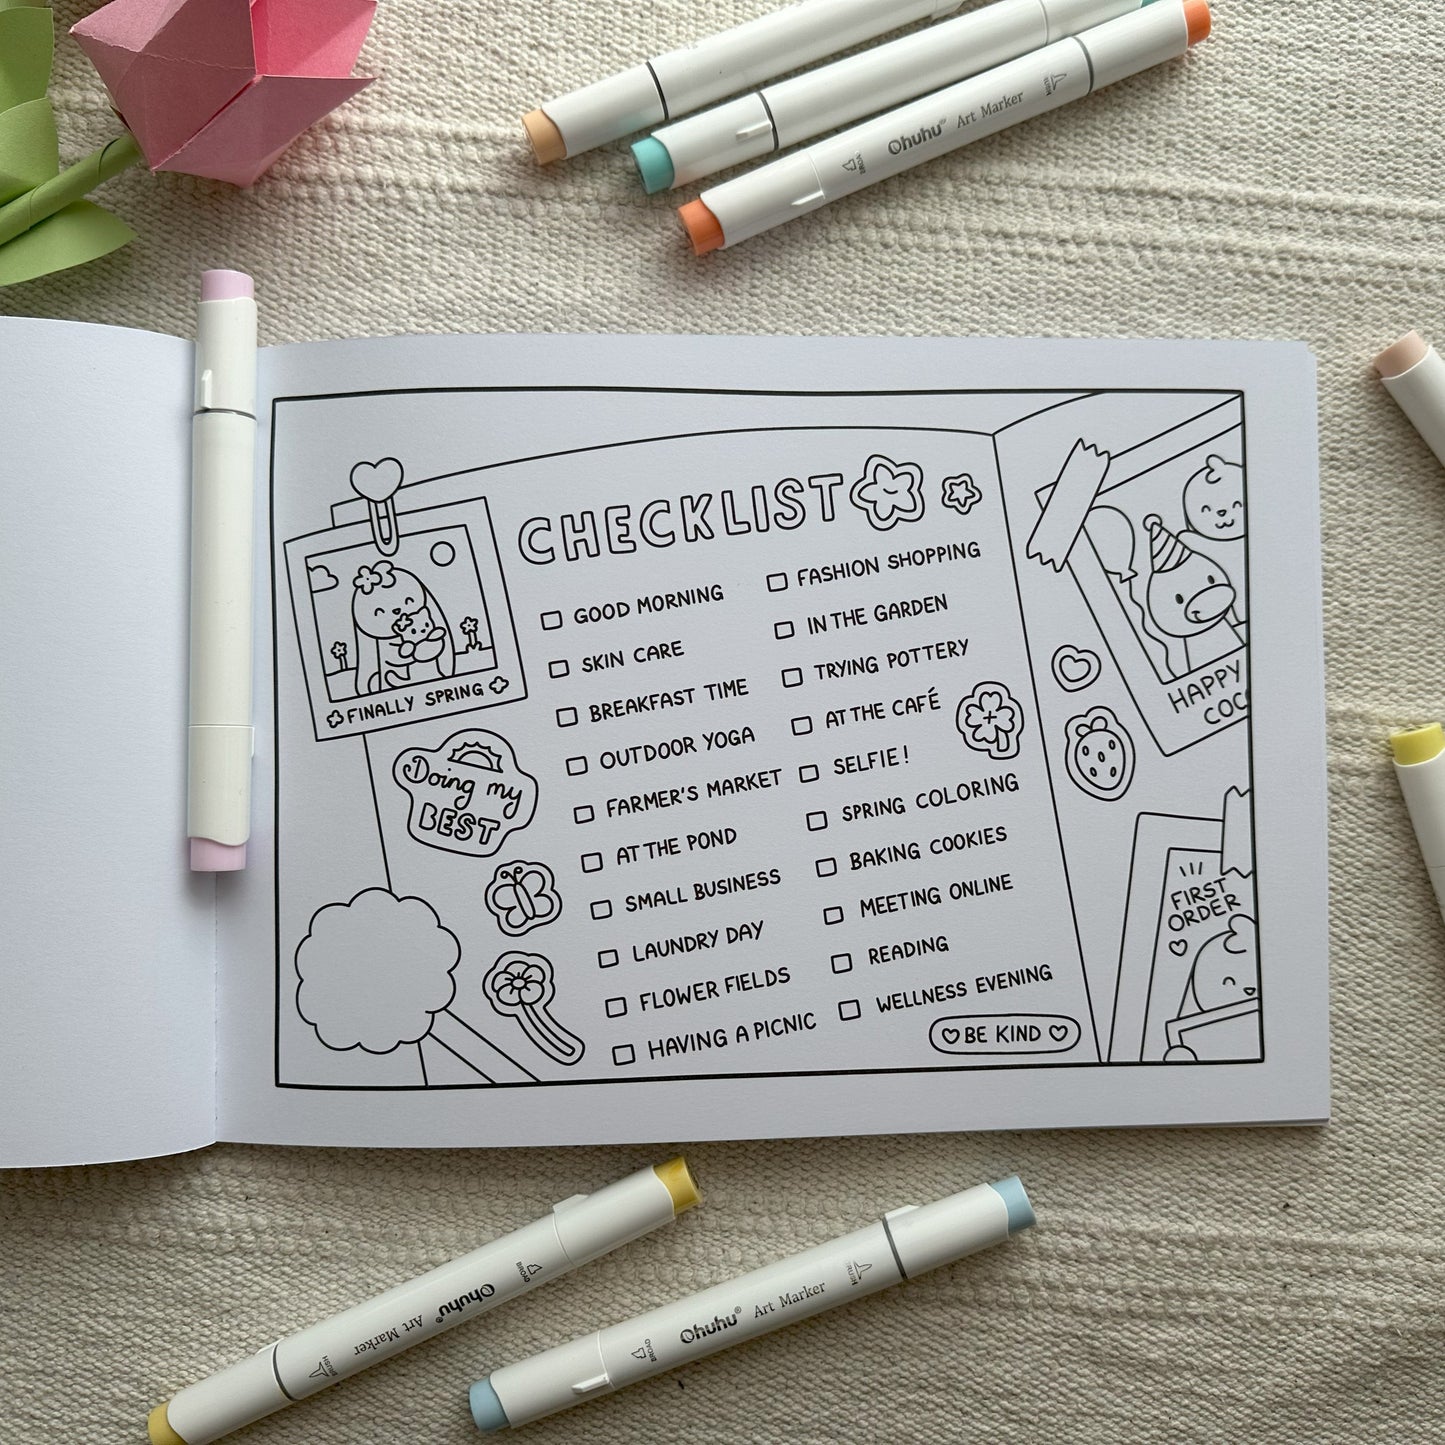 Ohuhu® Art Marker
BROAD
CHECKLIST
FINALLY SPRING
Doing my
BEST
GOOD MORNING
SKIN CARE
BREAKFAST TIME
OUTDOOR YOGA
FARMER'S MARKET
AT THE POND
SMALL BUSINESS
LAUNDRY DAY
FLOWER FIELDS
HAVING A PICNIC
FASHION SHOPPING
IN THE GARDEN
TRYING POTTERY
AT THE CAFÉ
SELFIE!
SPRING COLORING
BAKING COOKIES
MEETING ONLINE
READING
WELLNESS EVENING
BE KIND
HAPPY
COC
FIRST
ORDER
Ohuhu® Art Marker
BRUSH
BROAD
Ohuhu® Art Marker
BROAD